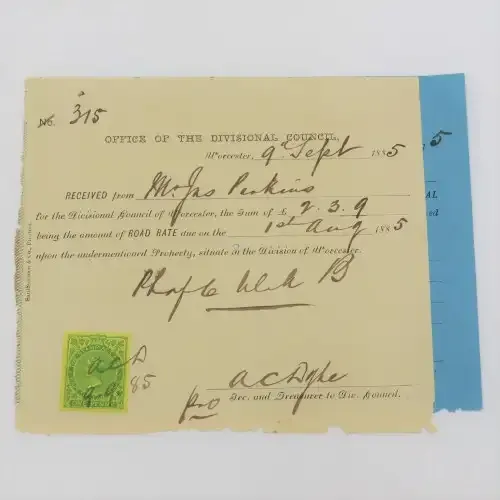 No. 315
OFFICE OF THE DIVISIONAL COUNCIL,
Worcester, 9th Sept 1885
RECEIVED from Mr Jas Perkins
for the Divisional Council of Worcester, the Sum of £ 2.3.9
being the amount of ROAD RATE due on the 1st Aug 1885
upon the undermentioned Property, situate in the Division of Worcester.
B
ACD
85
A C Dyke
pro Sec. and Treasurer to Div. Council.
5